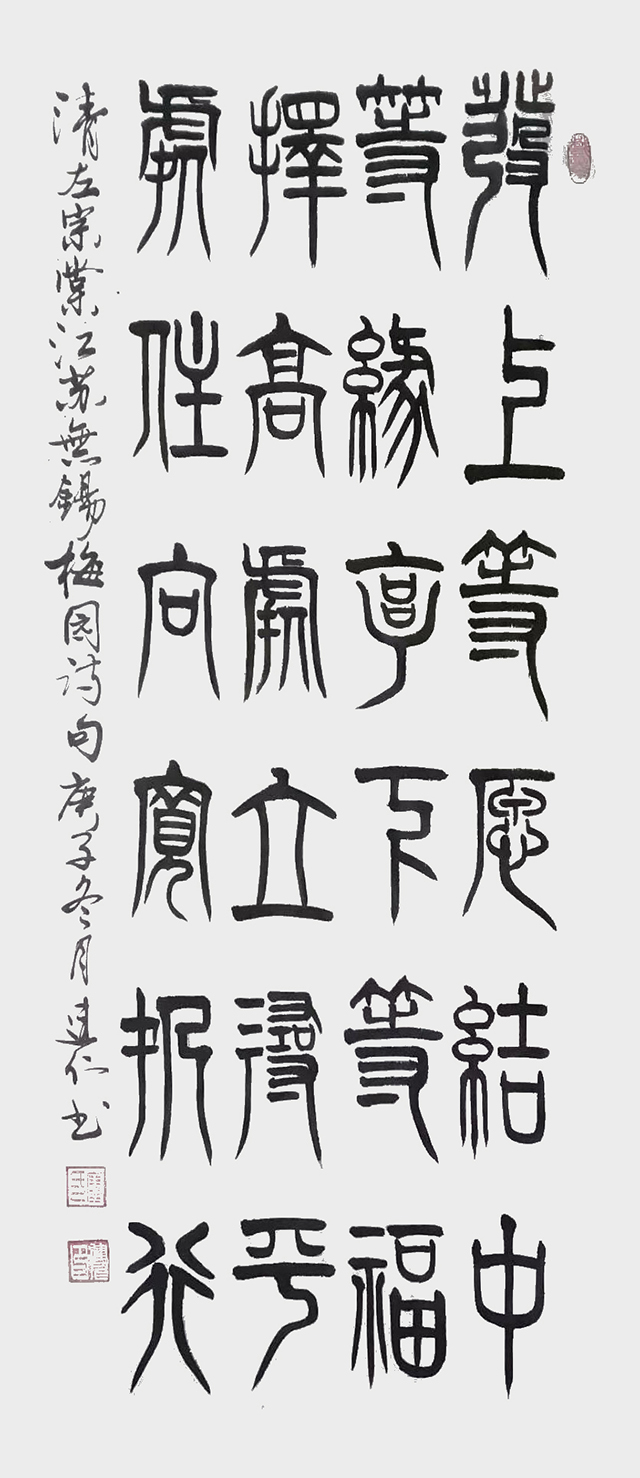 發上等愿結中
等緣享下等福
擇高處立尋平
處住向寬處行
清左宗棠江苏無錫梅园诗句庚子冬月建仁书